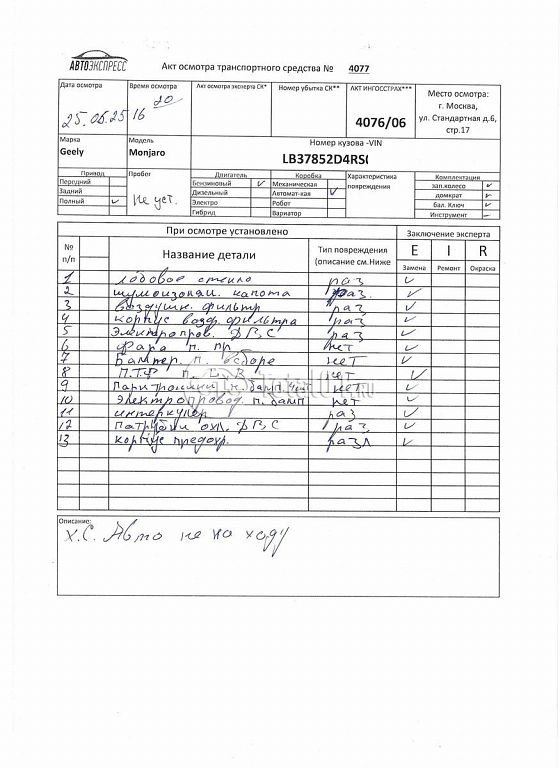 АВТОЭКСПРЕСС
Акт осмотра транспортного средства № 4077
Дата осмотра
Время осмотра
Акт осмотра эксперта СК*
Номер убытка СК**
АКТ ИНГОССТРАХ***
Место осмотра:
г. Москва,
ул. Стандартная д.6,
стр.17
16 20
4076/06
Марка
Модель
Номер кузова -VIN
Geely
Monjaro
LB37852D4RS
Привод
Пробег
Двигатель
Коробка
Характеристика повреждения
Комплектация
Передний
Бензиновый ✓
Механическая
зап.колесо ✓
Задний
Не уст.
Дизельный
Автомат-кая ✓
домкрат
Полный ✓
Электро
Робот
бал. Ключ ✓
Гибрид
Вариатор
Инструмент
При осмотре установлено
Заключение эксперта
№ п/п
Название детали
Тип повреждения
(описание см.Ниже
E I R
Замена Ремонт Окраска
1 лобовое стекло раз ✓
2 шумоизоляц. капота раз. ✓
3 Воздушн. фильтр раз ✓
4 корпус возд. фильтра раз ✓
5 Электропров. ДВС раз ✓
6 Фара п. пр нет ✓
7 Бампер. п. в сборе нет ✓
8 ПТФ п. нет ✓
9 п. бамп. нет ✓
10 Электропровод. п. бамп нет ✓
11 интеркулер раз ✓
12 Патрубки охл. ДВС раз ✓
13 корпус предохр. разл ✓
Описание:
Х.С. Авто не на ходу